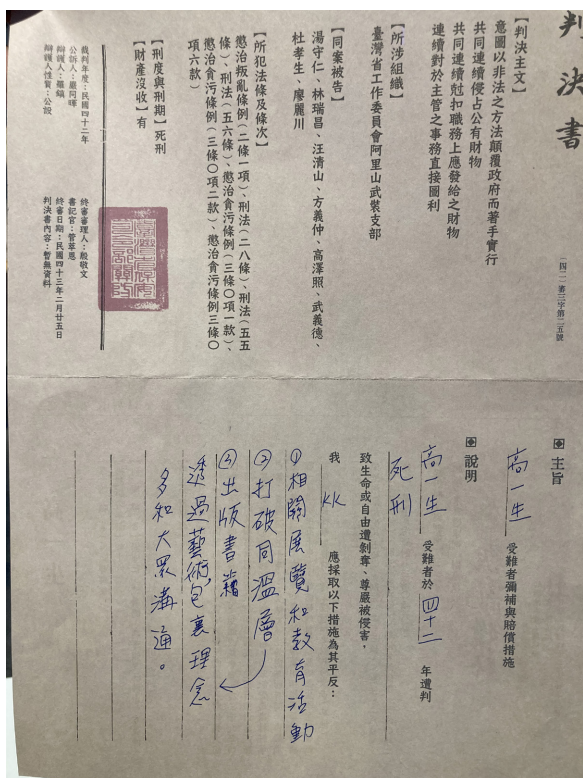 判決書
(四二)審三字第二五號
【判決主文】
意圖以非法之方法顛覆政府而著手實行
共同連續侵占公有財物
共同連續尅扣職務上應發給之財物
連續對於主管之事務直接圖利
【所涉組織】
臺灣省工作委員會阿里山武裝支部
【同案被告】
湯守仁、林瑞昌、汪清山、方義仲、高澤照、武義德、
杜孝生、廖麗川
【所犯法條及條次】
懲治叛亂條例(二條一項)、刑法(二八條)、刑法(五五
條)、刑法(五六條)、懲治貪污條例(三條〇項一款)、
懲治貪污條例(三條〇項二款)、懲治貪污條例三條〇
項六款)
【刑度與刑期】死刑
【財產沒收】有
裁判年度:民國四十二年
公訴人:嚴阿暉
辯護人:羅鎮
辯護人性質:公設
終審審理人:殷敬文
書記官:管草恩
終審日期:民國四十三年二月廿五日
判決書內容:暫無資料
主旨
高一生 受難者彌補與賠償措施
說明
高一生 受難者於 四十二 年遭判
死刑
致生命或自由遭剝奪、尊嚴被侵害,
我 KK 應採取以下措施為其平反:
①相關展覽和教育活動
②打破同溫層
③出版書籍
透過藝術包裹理念
多和大眾溝通。